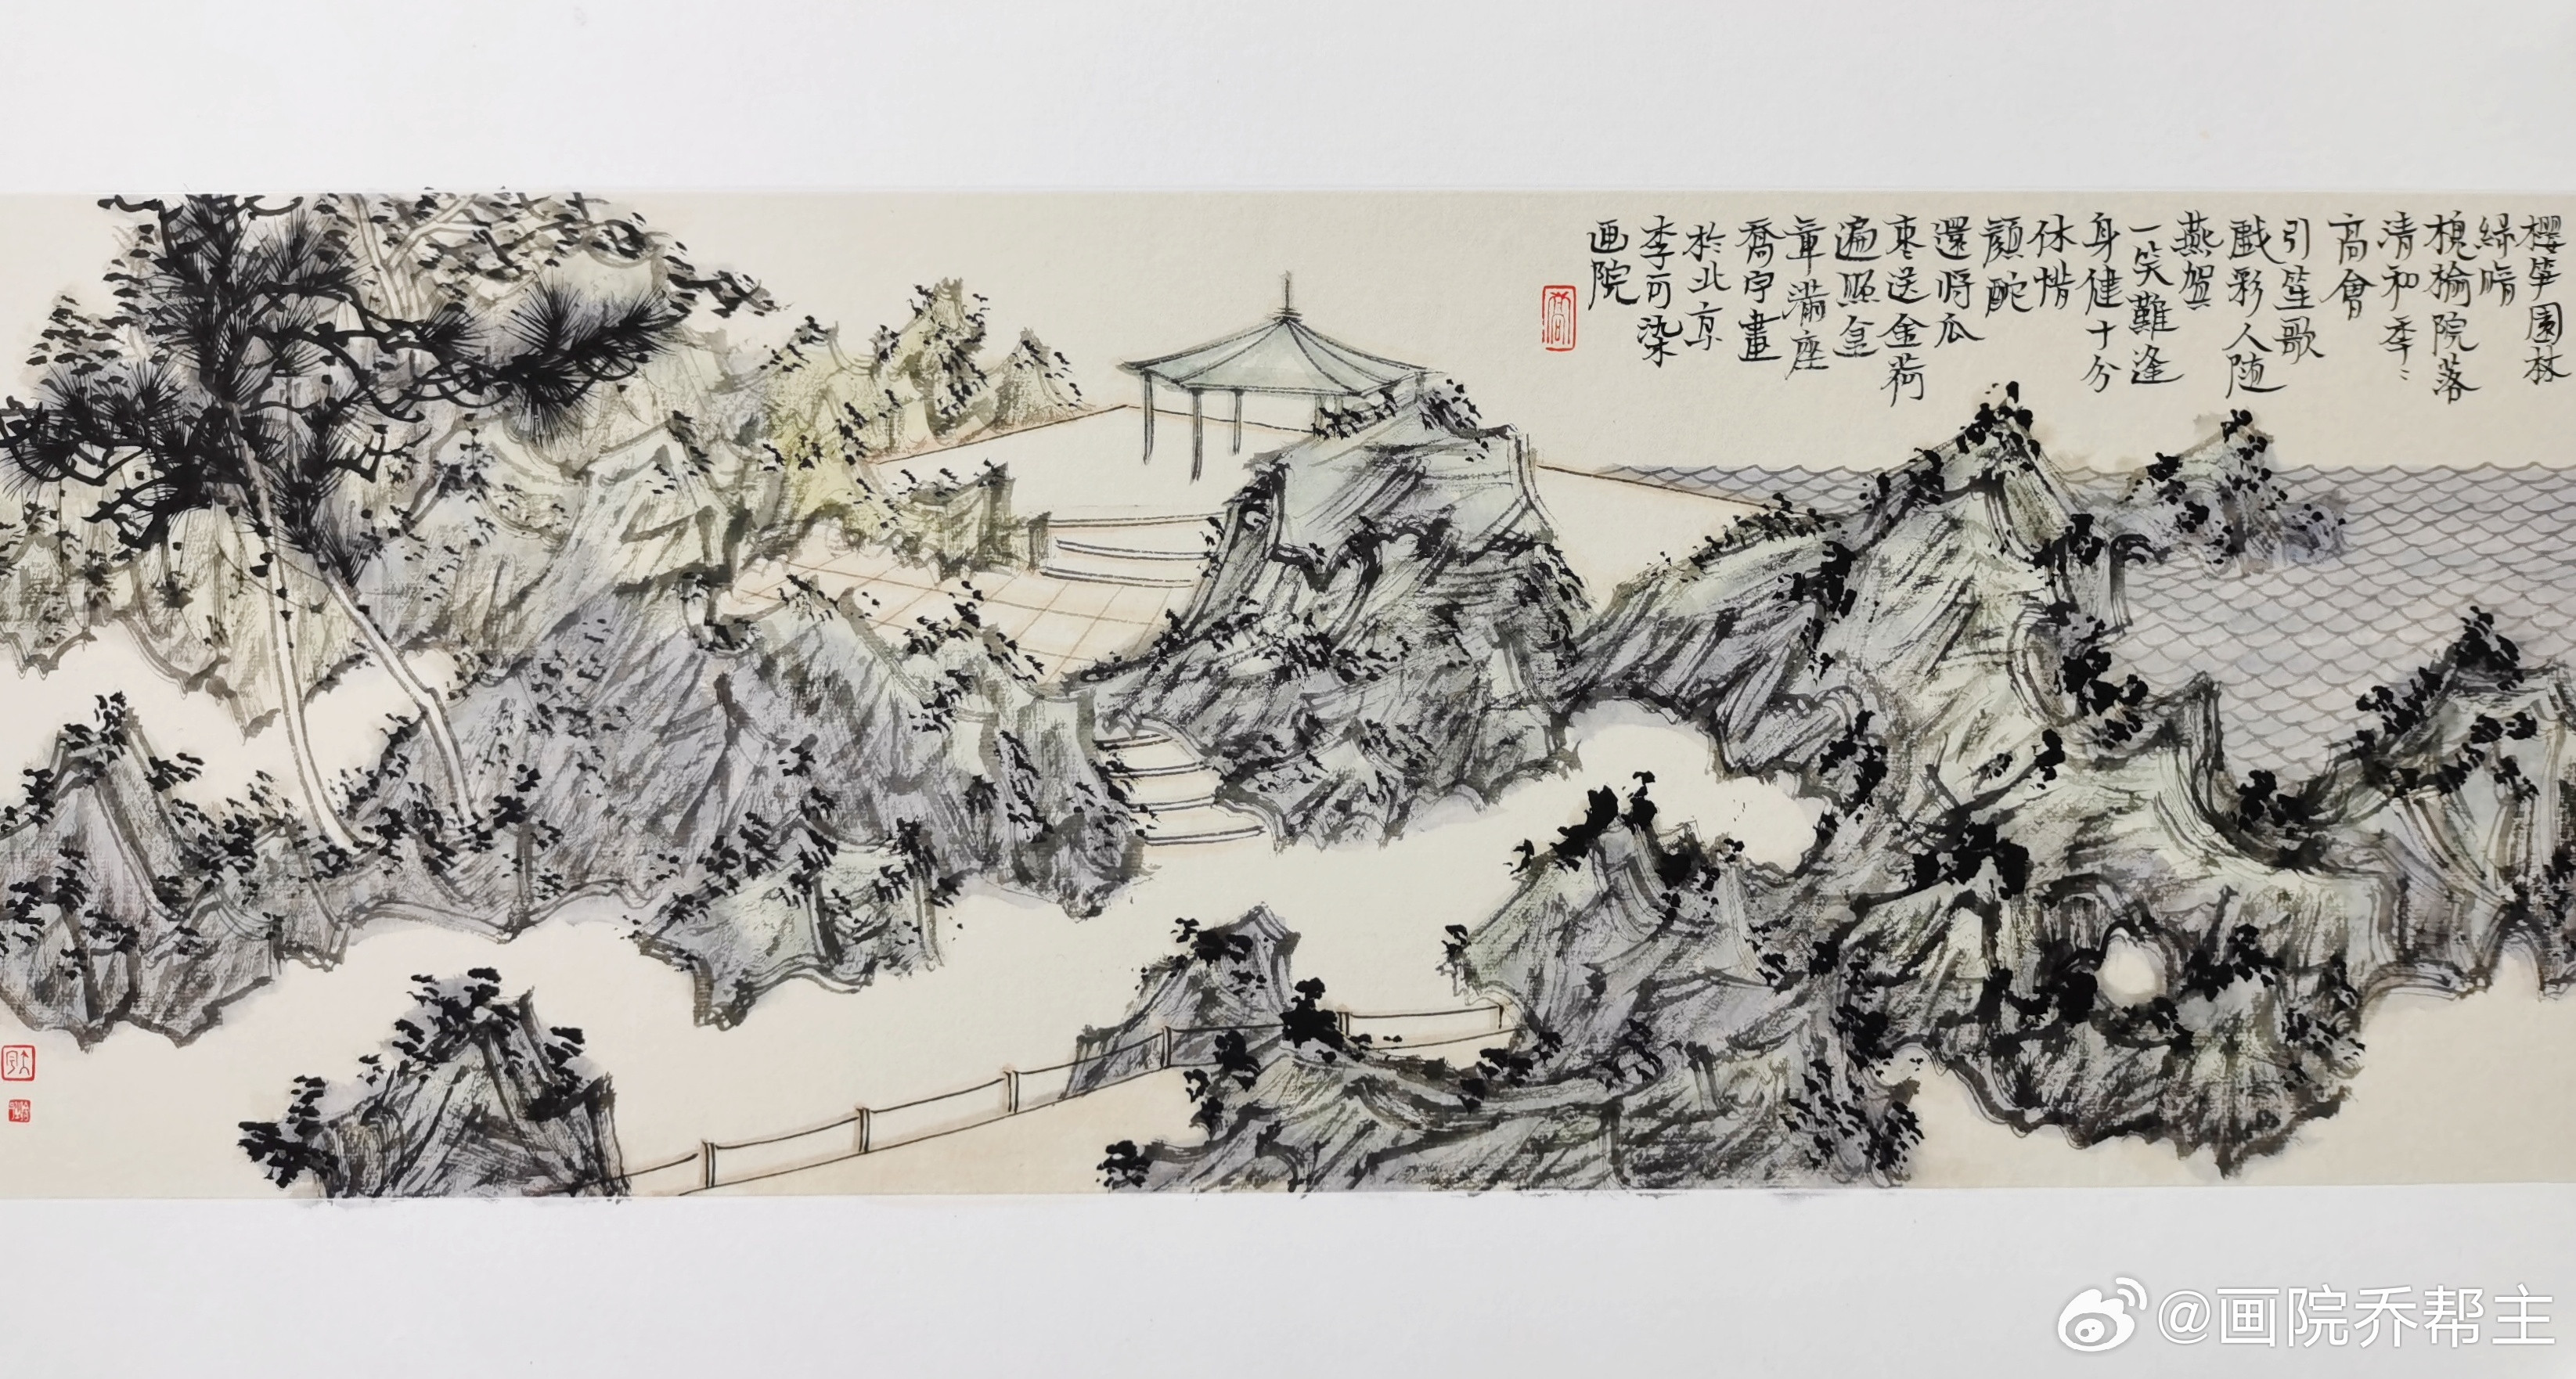 櫻笋園林
綠暗
槐榆院落
清和季〻
高會
引笙歌
戲彩人随
燕賀
一笑難逢
身健十分
休惜
顔酡
還將瓜
棗送金荷
遍照金
章滿座
喬宇畫
於北京
李可染
画院
喬
@画院乔帮主